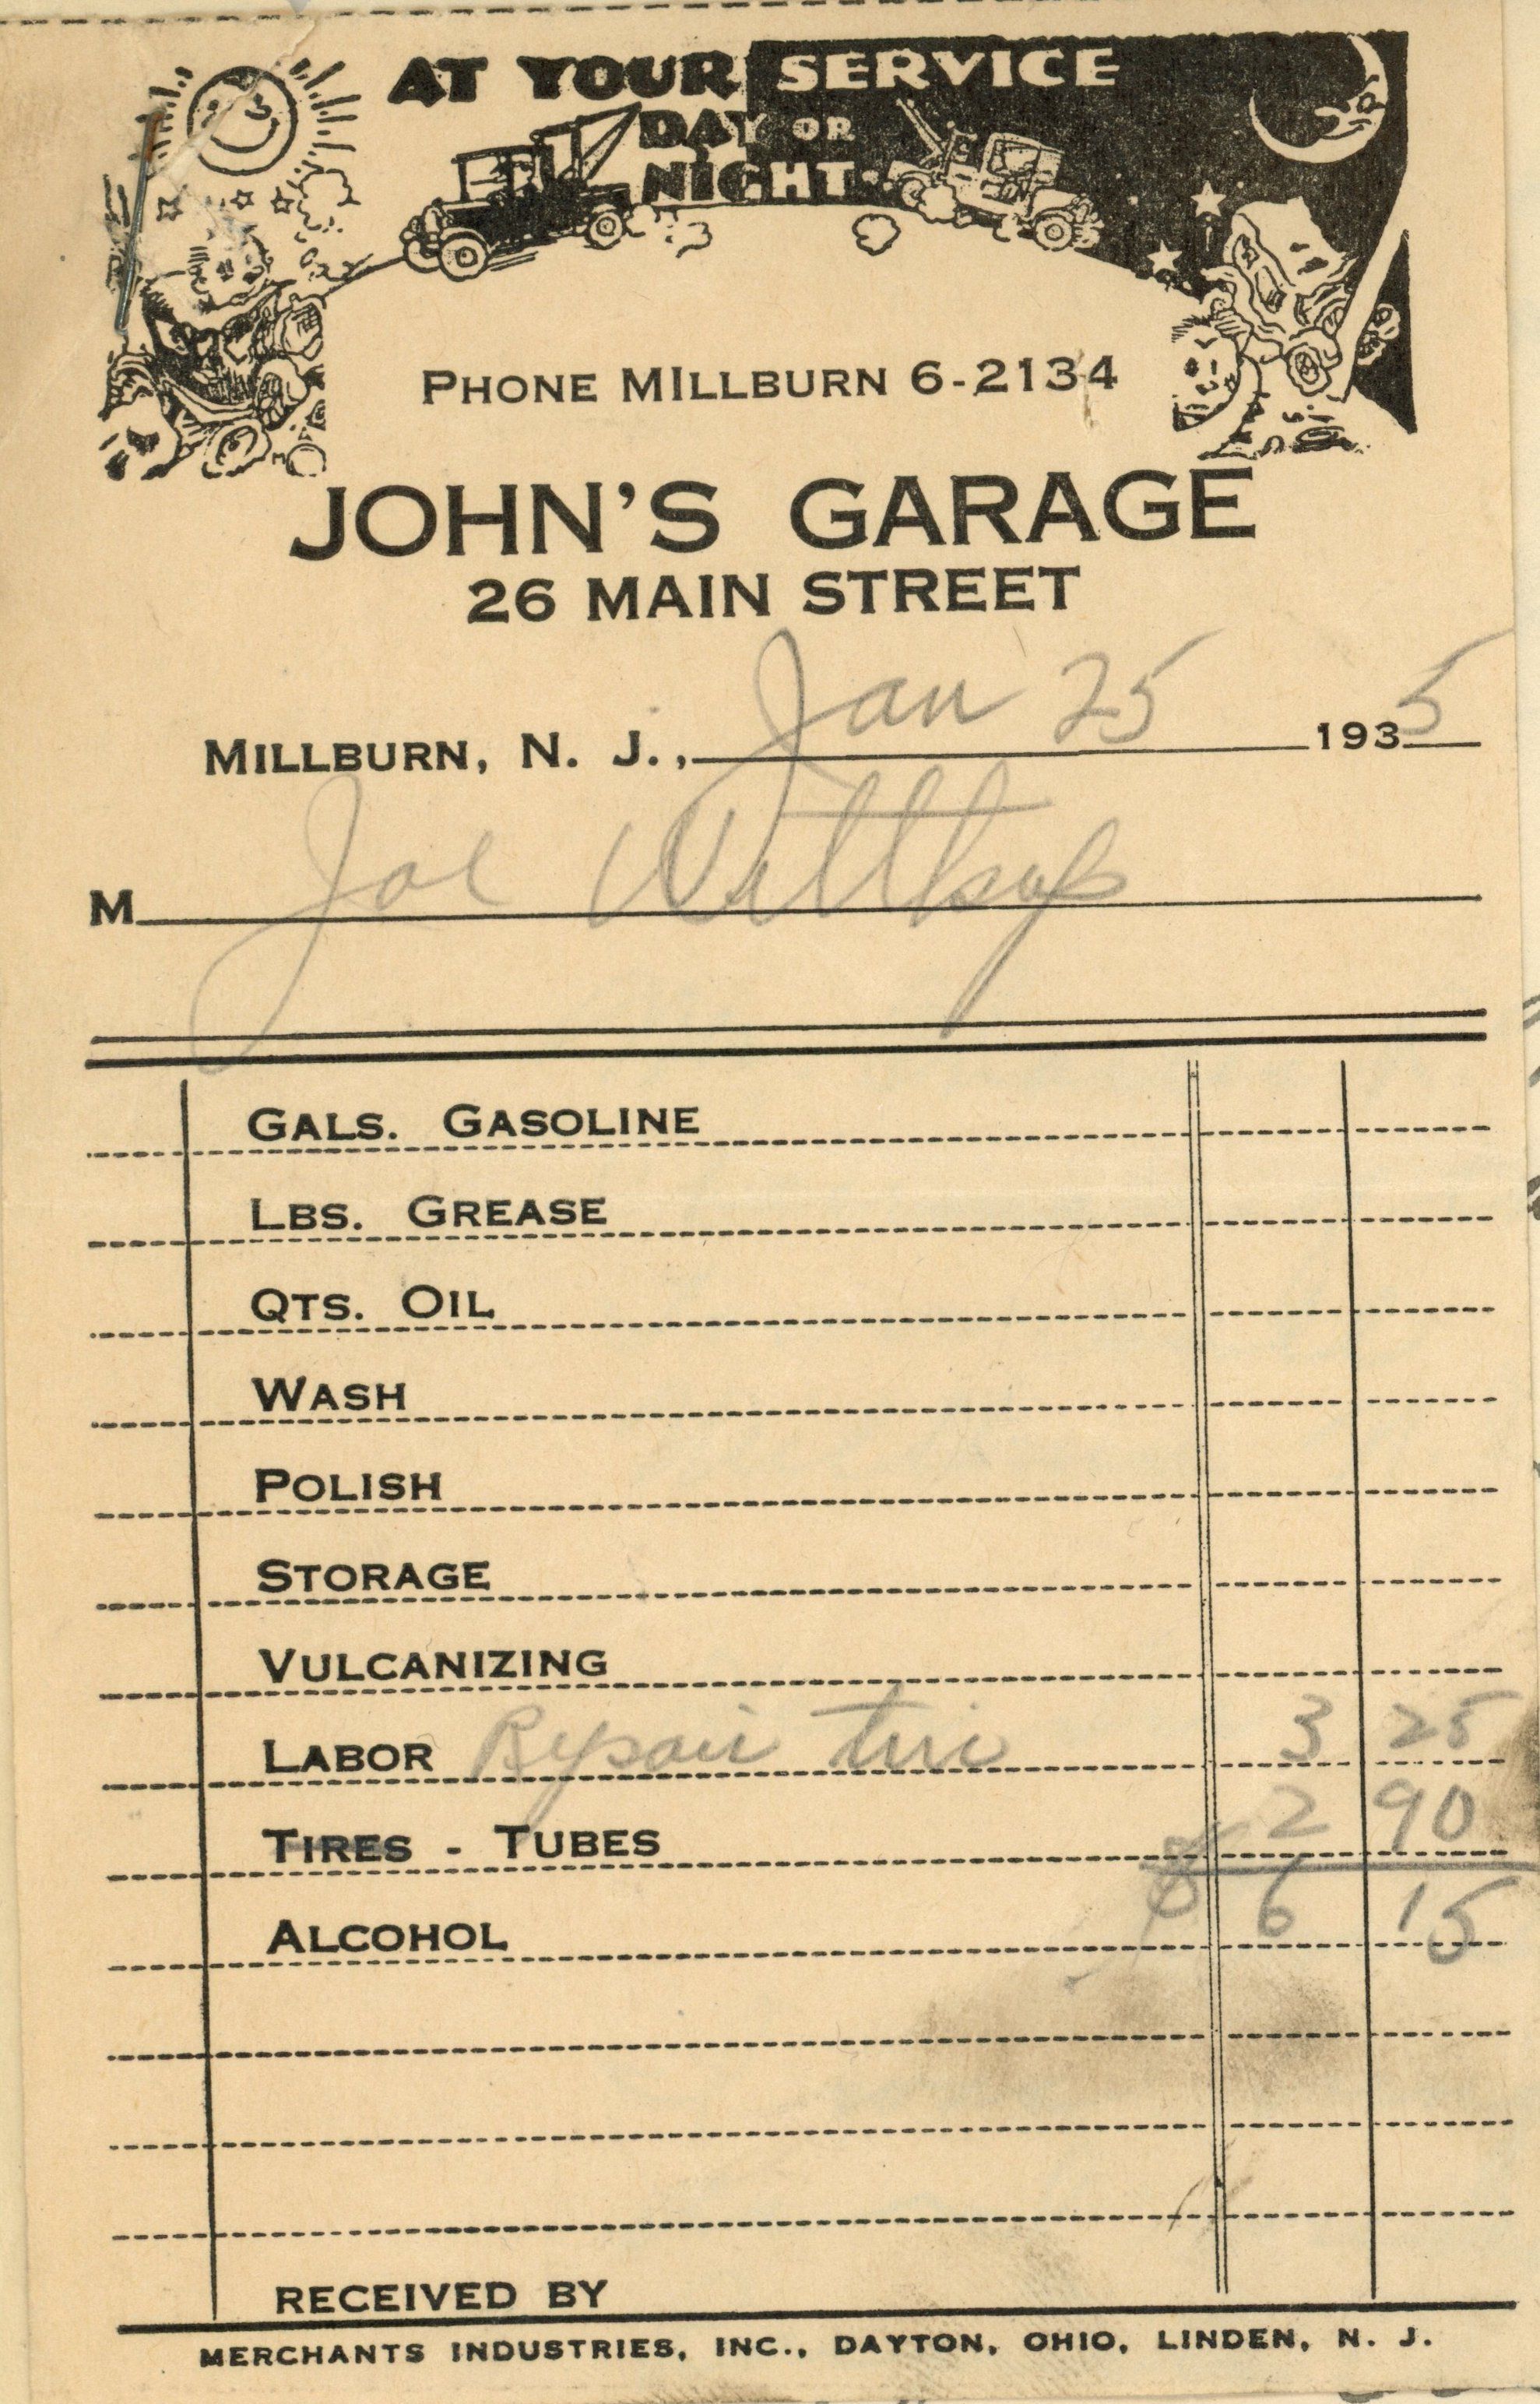 AT YOUR SERVICE
DAY OR
NIGHT
PHONE MILLBURN 6-2134
JOHN'S GARAGE
26 MAIN STREET
MILLBURN, N. J., Jan 25 1935
M Joe
GALS. GASOLINE
LBS. GREASE
QTS. OIL
WASH
POLISH
STORAGE
VULCANIZING
LABOR Repair tire 3 25
TIRES - TUBES 2 90
ALCOHOL 6 15
RECEIVED BY
MERCHANTS INDUSTRIES, INC., DAYTON, OHIO, LINDEN, N. J.